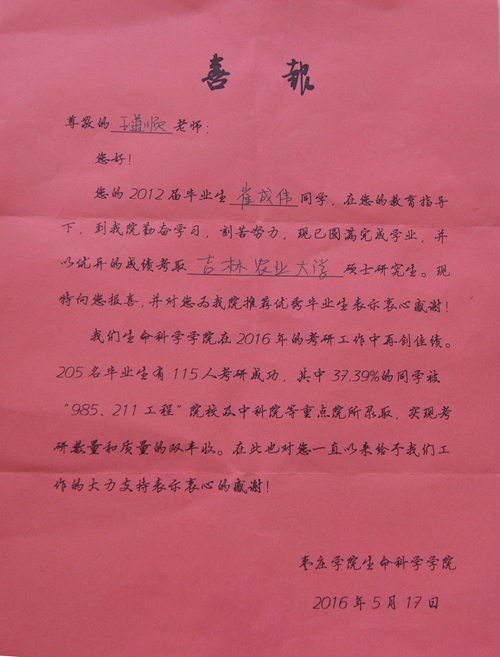 喜 報
尊敬的 王道顺 老师：
您好！
您的 2012 届毕业生 崔成伟 同学，在您的教育指导
下，到我院勤奋学习，刻苦努力，现已圆满完成学业，并
以优异的成绩考取 吉林农业大学 硕士研究生。现
特向您报喜，并对您为我院推荐优秀毕业生表示衷心感谢！
我们生命科学学院在 2016 年的考研工作中再创佳绩。
205 名毕业生有 115 人考研成功，其中 37.39% 的同学被
“985、211 工程”院校及中科院等重点院所录取，实现考
研数量和质量的双丰收。在此也对您一直以来给予我们工
作的大力支持表示衷心的感谢！
枣庄学院生命科学学院
2016 年 5 月 17 日